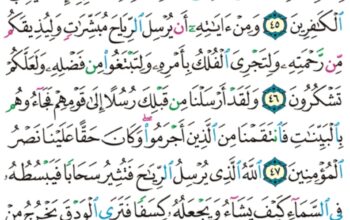 ٱلْكَٰفِرِينَ ٤٥ وَمِنْ ءَايَٰتِهِۦٓ أَن يُرْسِلَ ٱلرِّيَاحَ مُبَشِّرَٰتٍ وَلِيُذِيقَكُم
مِّن رَّحْمَتِهِۦ وَلِتَجْرِىَ ٱلْفُلْكُ بِأَمْرِهِۦ وَلِتَبْتَغُوا۟ مِن فَضْلِهِۦ وَلَعَلَّكُمْ
تَشْكُرُونَ ٤٦ وَلَقَدْ أَرْسَلْنَا مِن قَبْلِكَ رُسُلًا إِلَىٰ قَوْمِهِمْ فَجَآءُوهُم
بِٱلْبَيِّنَٰتِ فَٱنتَقَمْنَا مِنَ ٱلَّذِينَ أَجْرَمُوا۟ وَكَانَ حَقًّا عَلَيْنَا نَصْرُ
ٱلْمُؤْمِنِينَ ٤٧ ٱللَّهُ ٱلَّذِى يُرْسِلُ ٱلرِّيَٰحَ فَتُثِيرُ سَحَابًا فَيَبْسُطُهُۥ
فِى ٱلسَّمَآءِ كَيْفَ يَشَآءُ وَيَجْعَلُهُۥ كِسَفًا فَتَرَى ٱلْوَدْقَ يَخْرُجُ مِنْ